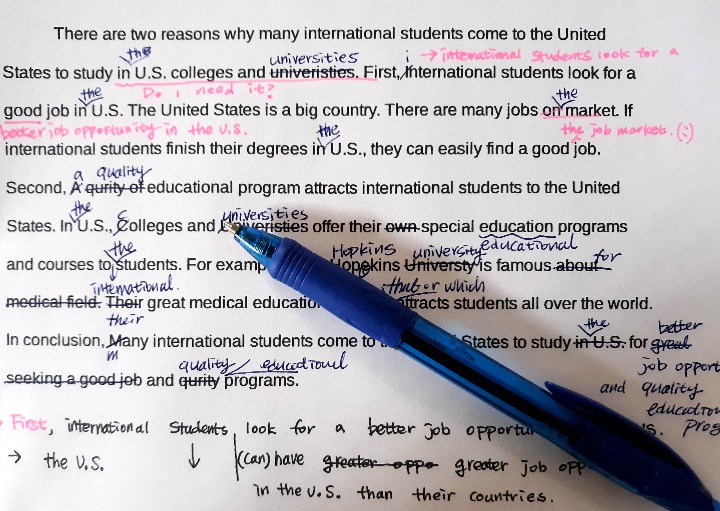 There are two reasons why many international students come to the United
the universities i → international students look for a
States to study in U.S. colleges and univeristies. First, International students look for a
the Do I need it? the
good job in U.S. The United States is a big country. There are many jobs on market. If
better job opportunity in the U.S. the the job market. (:)
international students finish their degrees in U.S., they can easily find a good job.
a quality
Second, A qurity of educational program attracts international students to the United
the c universities
States. In U.S., Colleges and Univeristies offer their own special education programs
the Hopkins university educational for
and courses to students. For examp Hopgkins Universty is famous about
international. that or which
medical field. Their great medical educatio attracts students all over the world.
their the better
In conclusion, Many international students come to States to study in U.S. for great
m quality educational job opport
seeking a good job and qurity programs. and quality
education
First, international students look for a better job opportu U.S. prog
→ the U.S. ↓ (can) have greater oppo greater job opp
in the U.S. than their countries.